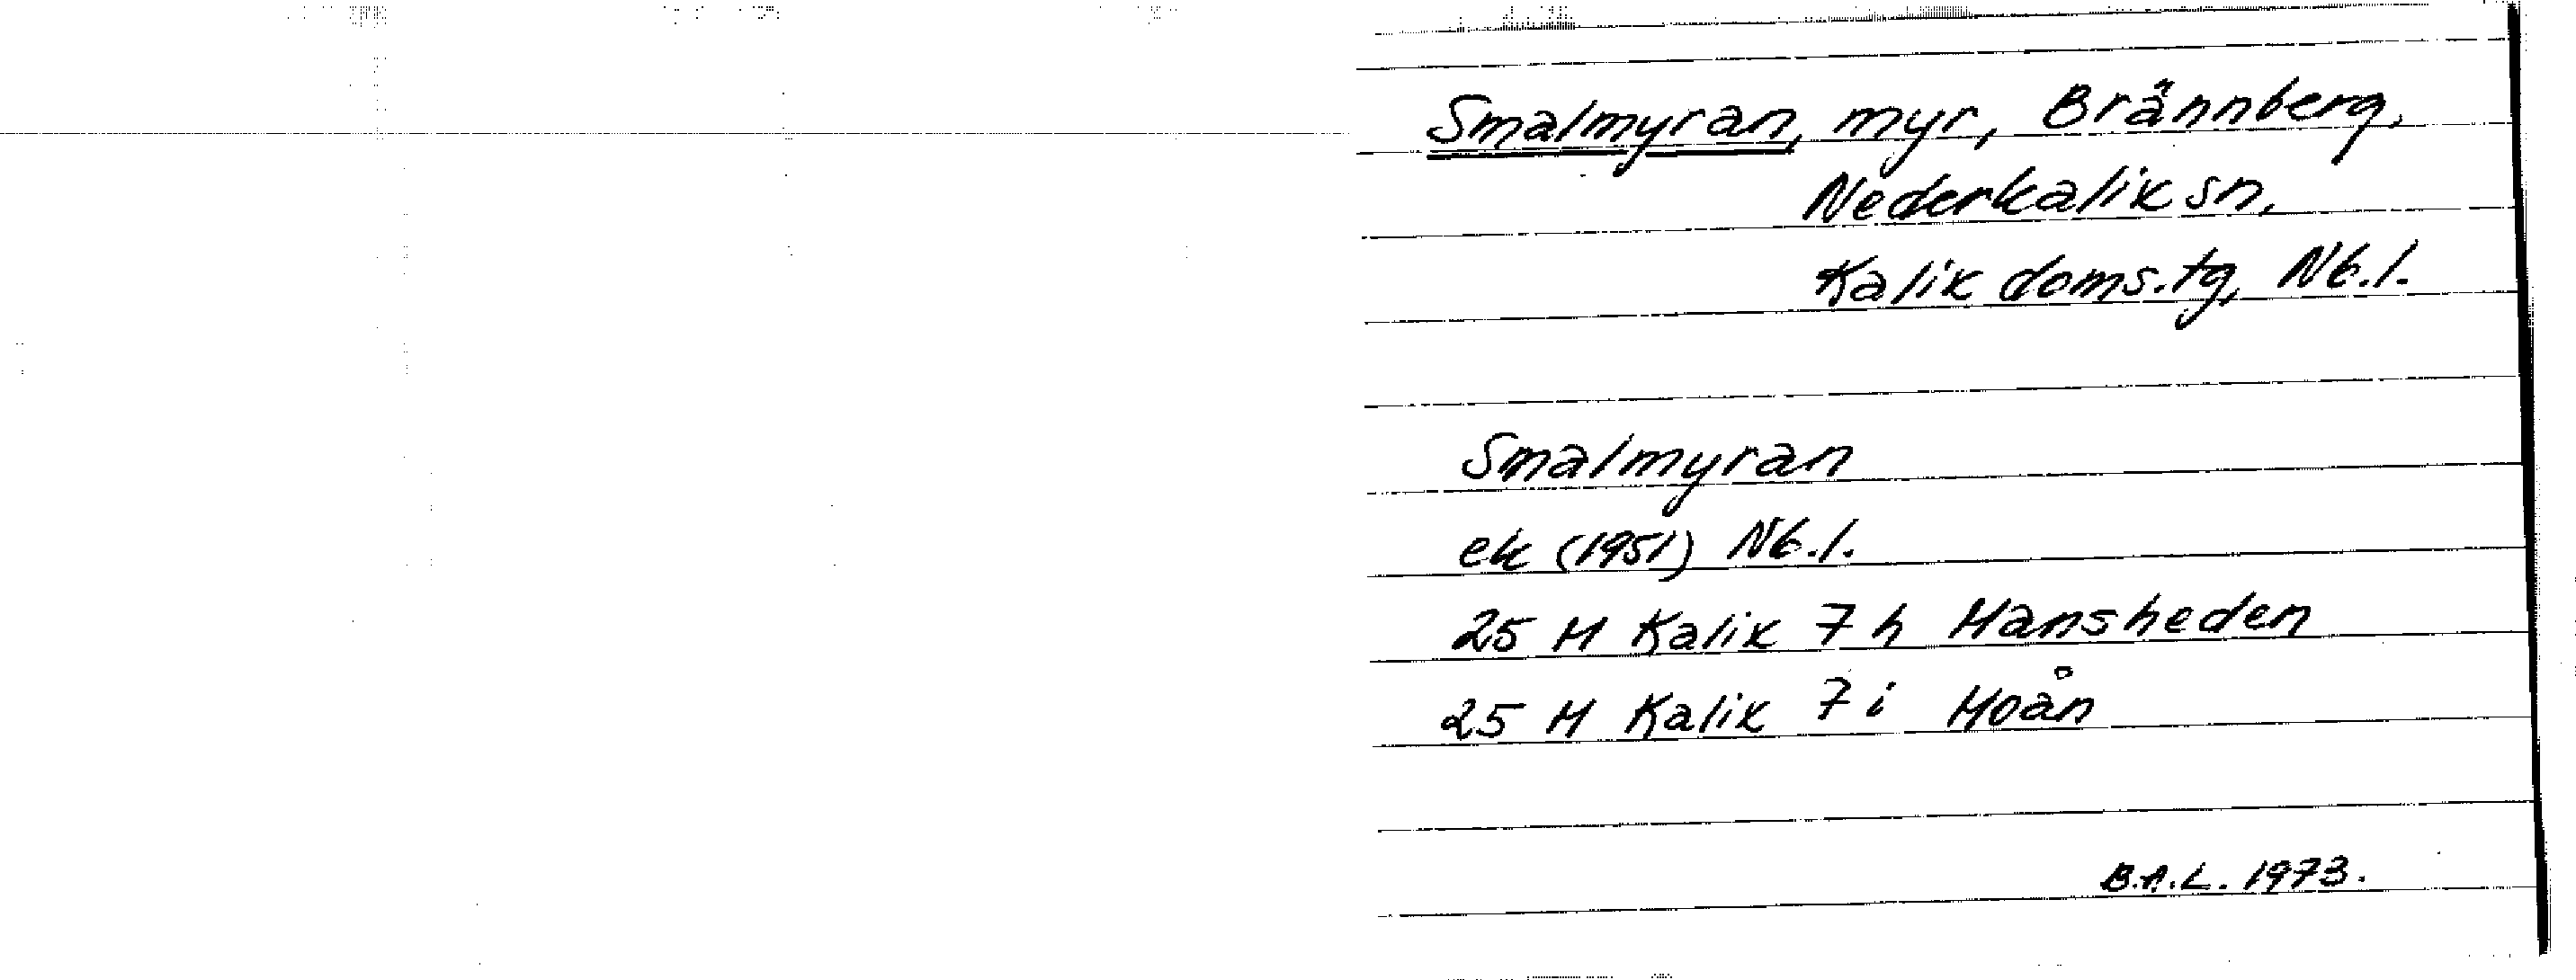 Smalmyran, myr, Brännberg,
Nederkalix sn,
Kalix doms.tg, Nb.l.
Smalmyran
ek (1951) Nb.l.
25 M Kalix 7 h Hansheden
25 M Kalix 7 i Moån
B.A.L. 1973.